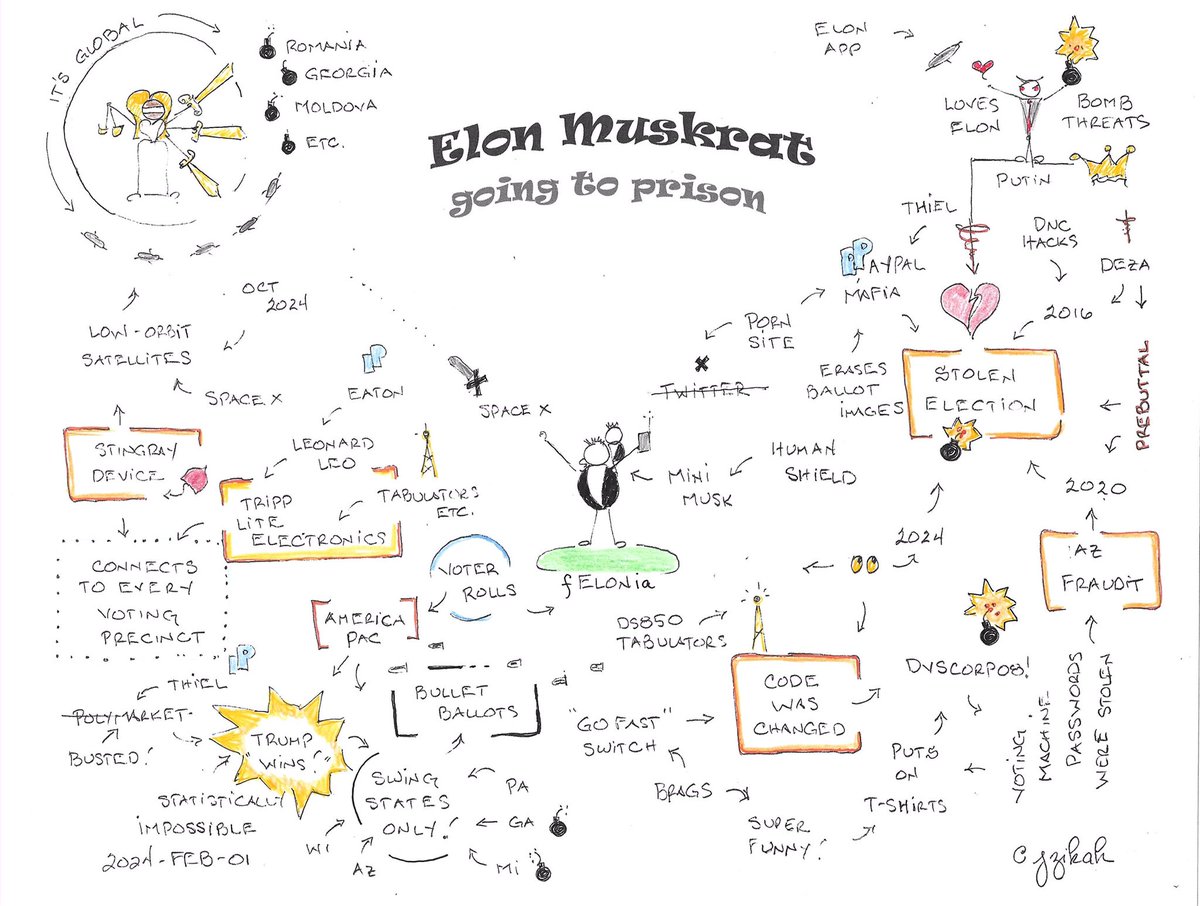 IT'S GLOBAL
ROMANIA
GEORGIA
MOLDOVA
ETC.
Elon Muskrat
going to prison
ELON
APP
LOVES
ELON
BOMB
THREATS
PUTIN
THIEL
PAYPAL
MAFIA
DNC
HACKS
DEZA
2016
PREBUTTAL
OCT
2024
LOW-ORBIT
SATELLITES
SPACE X
STINGRAY
DEVICE
CONNECTS
TO EVERY
VOTING
PRECINCT
EATON
LEONARD
LEO
TRIPP
LITE
ELECTRONICS
TABULATORS
ETC.
SPACE X
PORN
SITE
TWITTER
ERASES
BALLOT
IMAGES
STOLEN
ELECTION
HUMAN
SHIELD
MINI
MUSK
fELONia
VOTER
ROLLS
AMERICA
PAC
2020
AZ
FRAUDIT
2024
DS850
TABULATORS
CODE
WAS
CHANGED
DVSCORP08!
VOTING
MACHINE
PASSWORDS
WERE STOLEN
THIEL
POLYMARKET
BUSTED!
"TRUMP
WINS!"
STATISTICALLY
IMPOSSIBLE
2024-FEB-01
BULLET
BALLOTS
SWING
STATES
ONLY!
PA
GA
MI
AZ
WI
"GO FAST"
SWITCH
BRAGS
SUPER
FUNNY!
PUTS
ON
T-SHIRTS